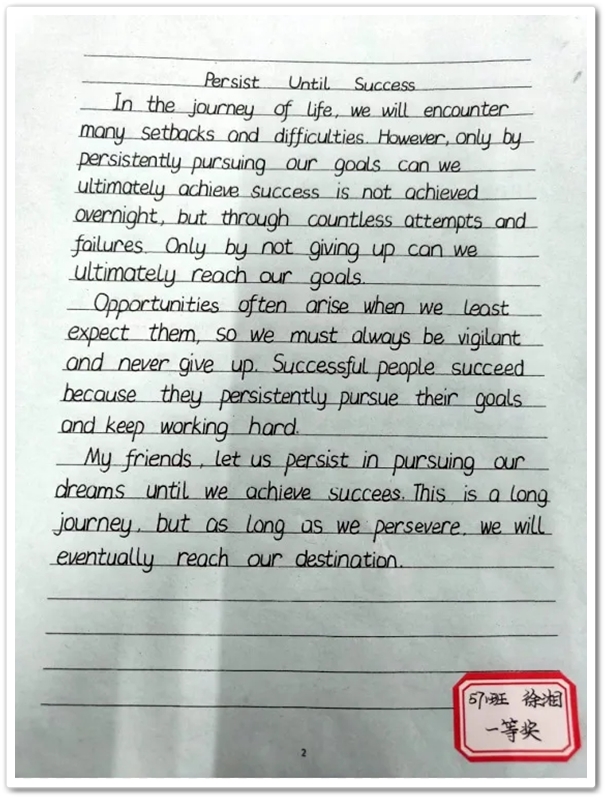 Persist Until Success
In the journey of life, we will encounter
many setbacks and difficulties. However, only by
persistently pursuing our goals can we
ultimately achieve success is not achieved
overnight, but through countless attempts and
failures. Only by not giving up can we
ultimately reach our goals.
Opportunities often arise when we least
expect them, so we must always be vigilant
and never give up. Successful people succeed
because they persistently pursue their goals
and keep working hard.
My friends, let us persist in pursuing our
dreams until we achieve succees. This is a long
journey, but as long as we persevere, we will
eventually reach our destination.
徐湘
一等奖
2